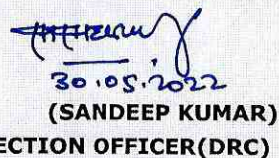 30.05.2022
(SANDEEP KUMAR)
ECTION OFFICER(DRC)